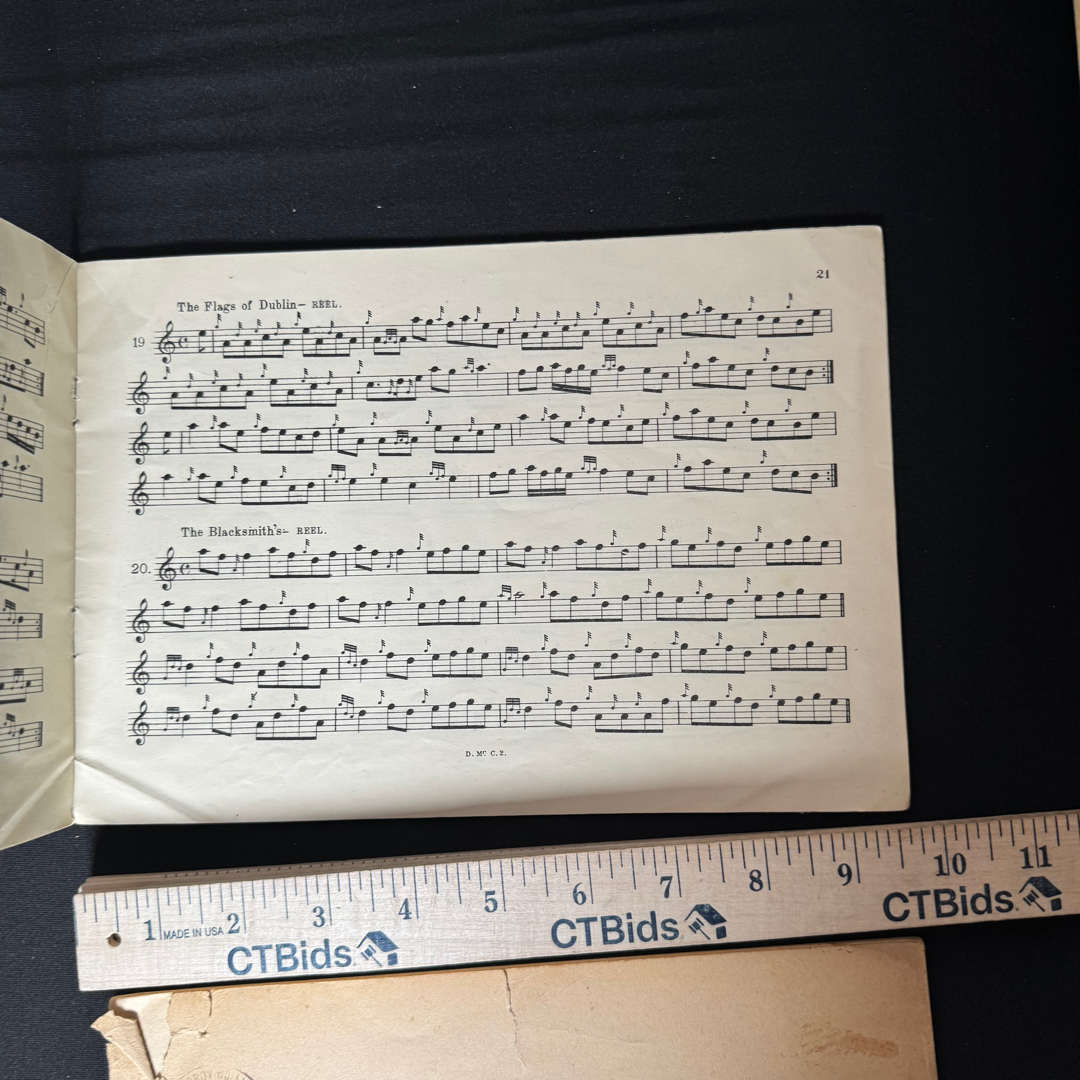 21
The Flags of Dublin– REEL.
19
The Blacksmith's– REEL.
20.
D. Mc C. 2.
1 2 3 4 5 6 7 8 9 10 11
MADE IN USA
CTBids CTBids CTBids